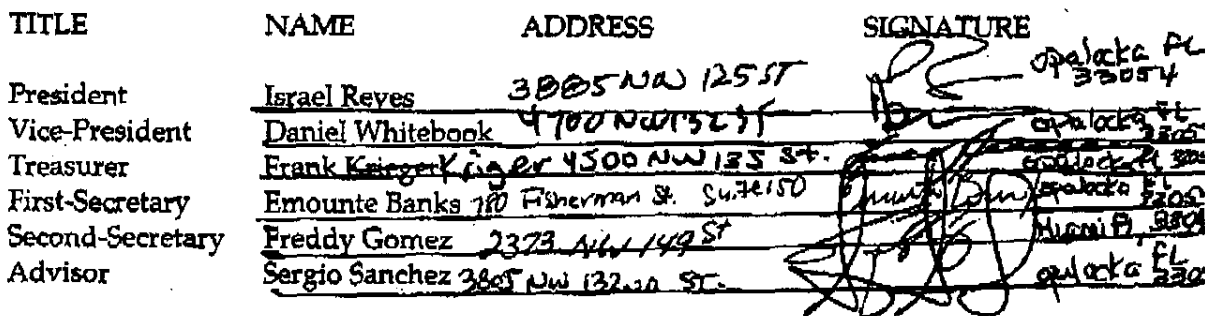 TITLE NAME ADDRESS SIGNATURE
opalocka FL
33054
President Israel Reyes 3885 NW 125 ST
Vice-President Daniel Whitebook 4700 NW 132 ST opalocka FL
Treasurer Frank Krieger Kiger 4500 NW 135 St.
First-Secretary Emounte Banks 780 Fisherman St. Suite 150 opalocka FL
Second-Secretary Freddy Gomez 2373 NW 149 St Miami Fl,
Advisor Sergio Sanchez 3805 NW 132nd ST. opalocka FL